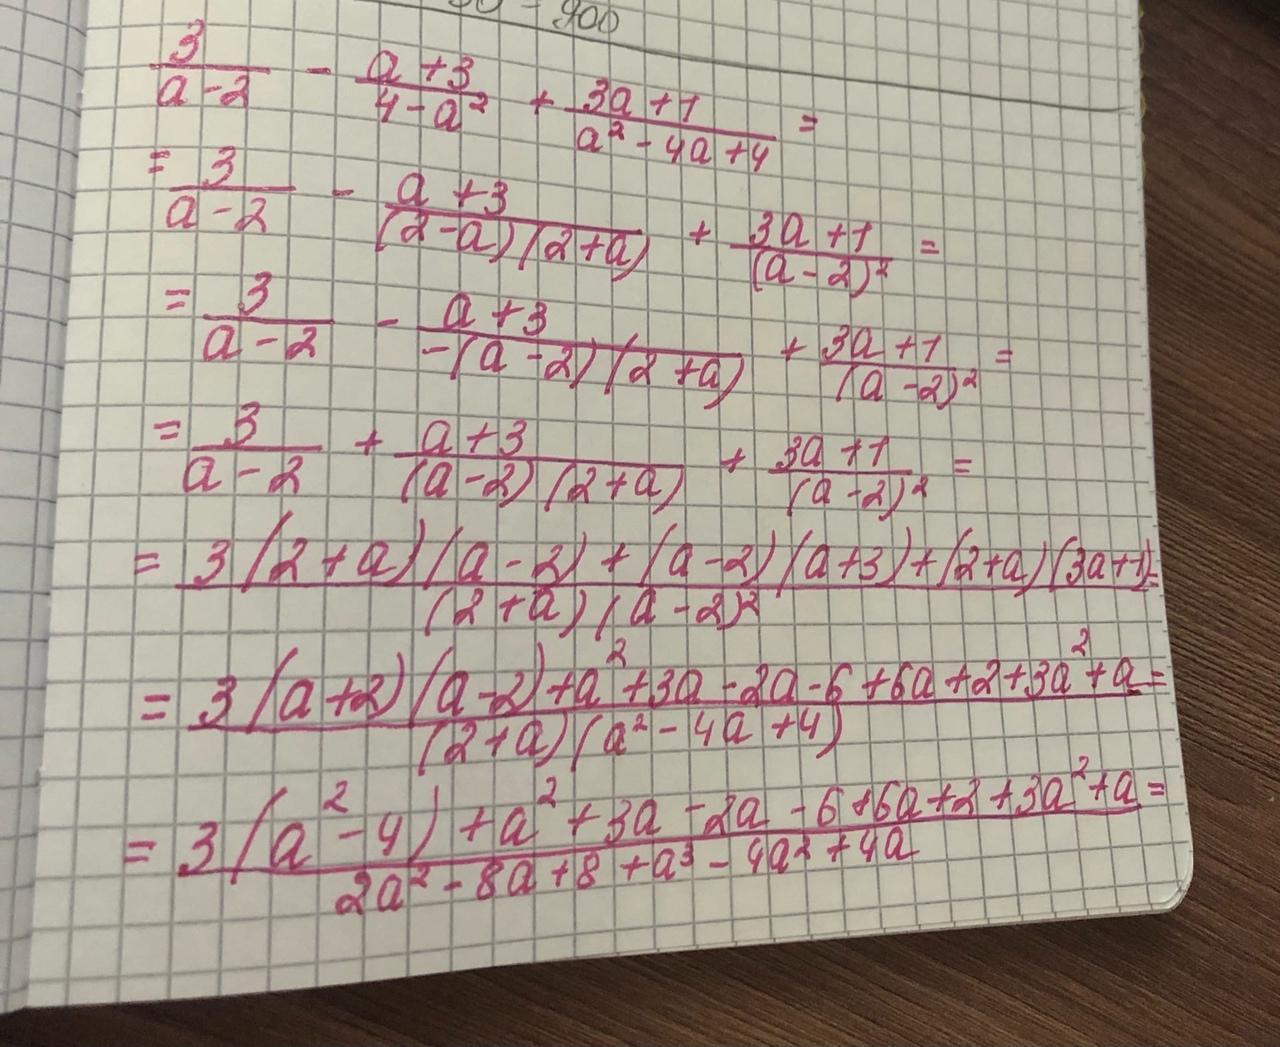 = 900
3/(a-2) - (a+3)/(4-a²) + (3a+1)/(a²-4a+4) =
= 3/(a-2) - (a+3)/((2-a)(2+a)) + (3a+1)/(a-2)² =
= 3/(a-2) - (a+3)/(-(a-2)(2+a)) + (3a+1)/(a-2)² =
= 3/(a-2) + (a+3)/((a-2)(2+a)) + (3a+1)/(a-2)² =
= (3(2+a)(a-2)+(a-2)(a+3)+(2+a)(3a+1))/((2+a)(a-2)²) =
= (3(a+2)(a-2)+a²+3a-2a-6+6a+2+3a²+a)/((2+a)(a²-4a+4)) =
= (3(a²-4)+a²+3a-2a-6+6a+2+3a²+a)/(2a²-8a+8+a³-4a²+4a) =